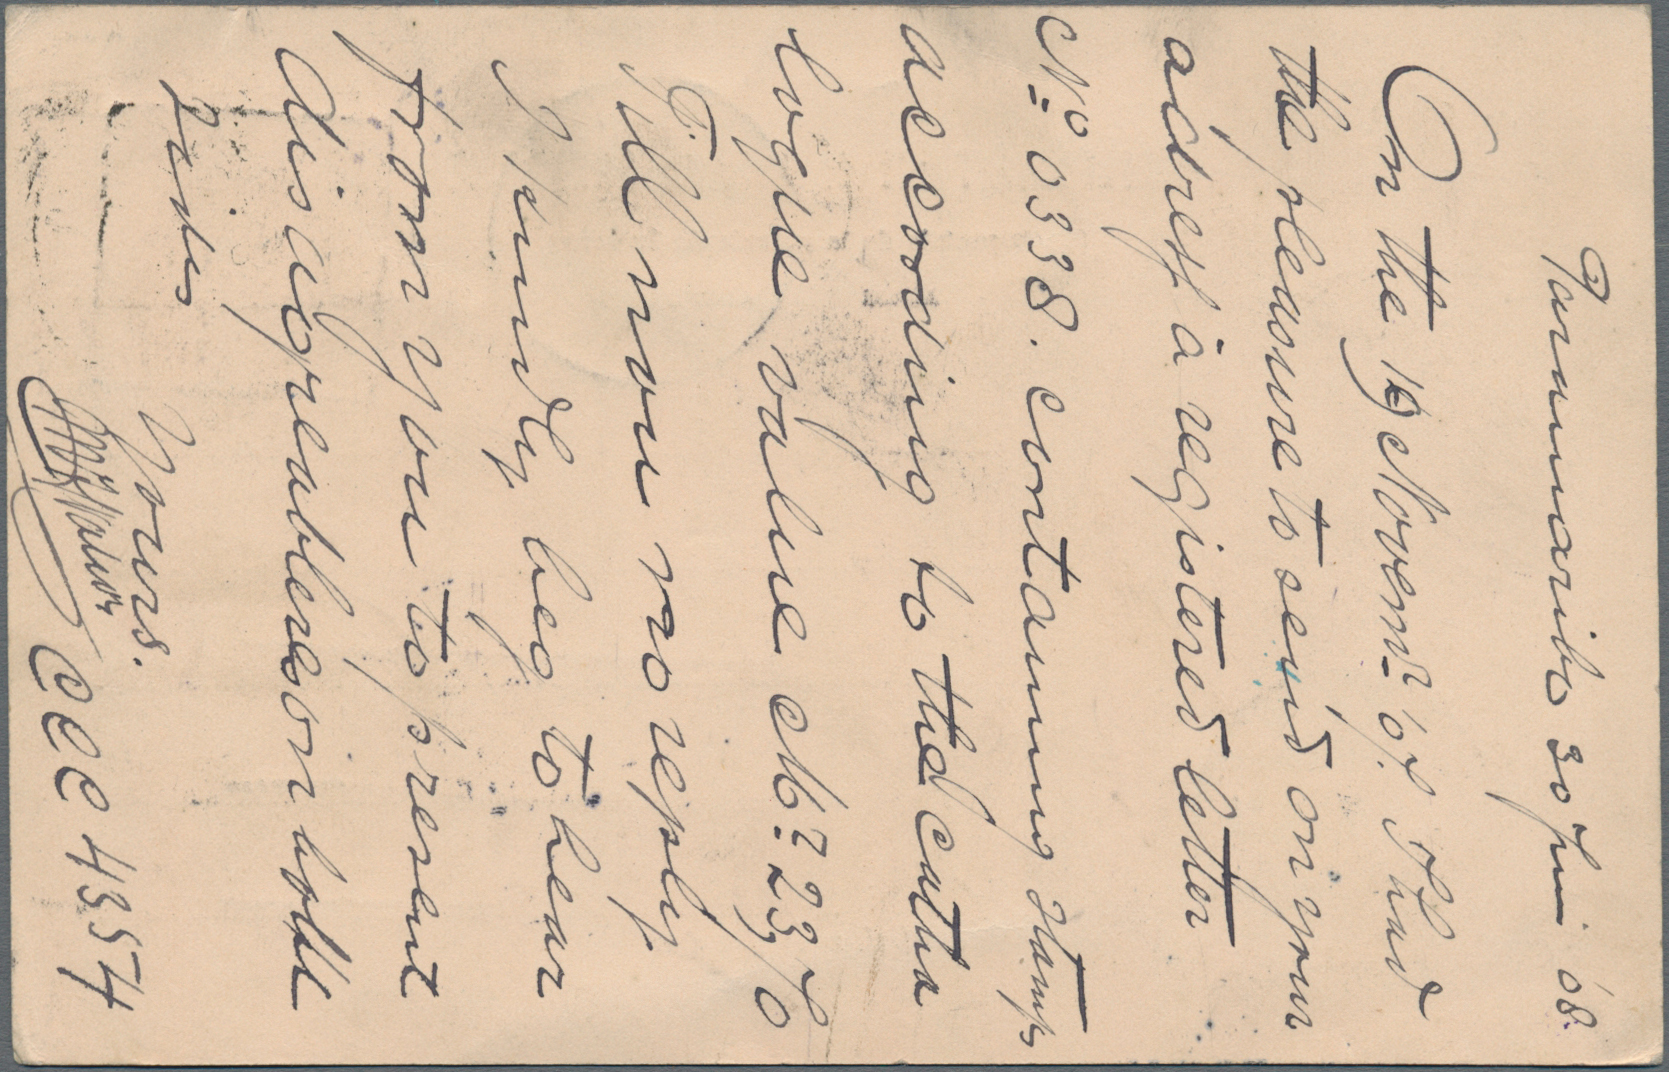 Paramaribo 30 Juni '08.
On the 19 Novemb. '07. I had
the pleasure to send on your
adress à registered letter
No 0338. containing stamps
according to the catha
logue value M. 23,70
Till now no reply
I kindly beg to hear
from you to present
disagreableson both
sides
Yours.
CCC 4357